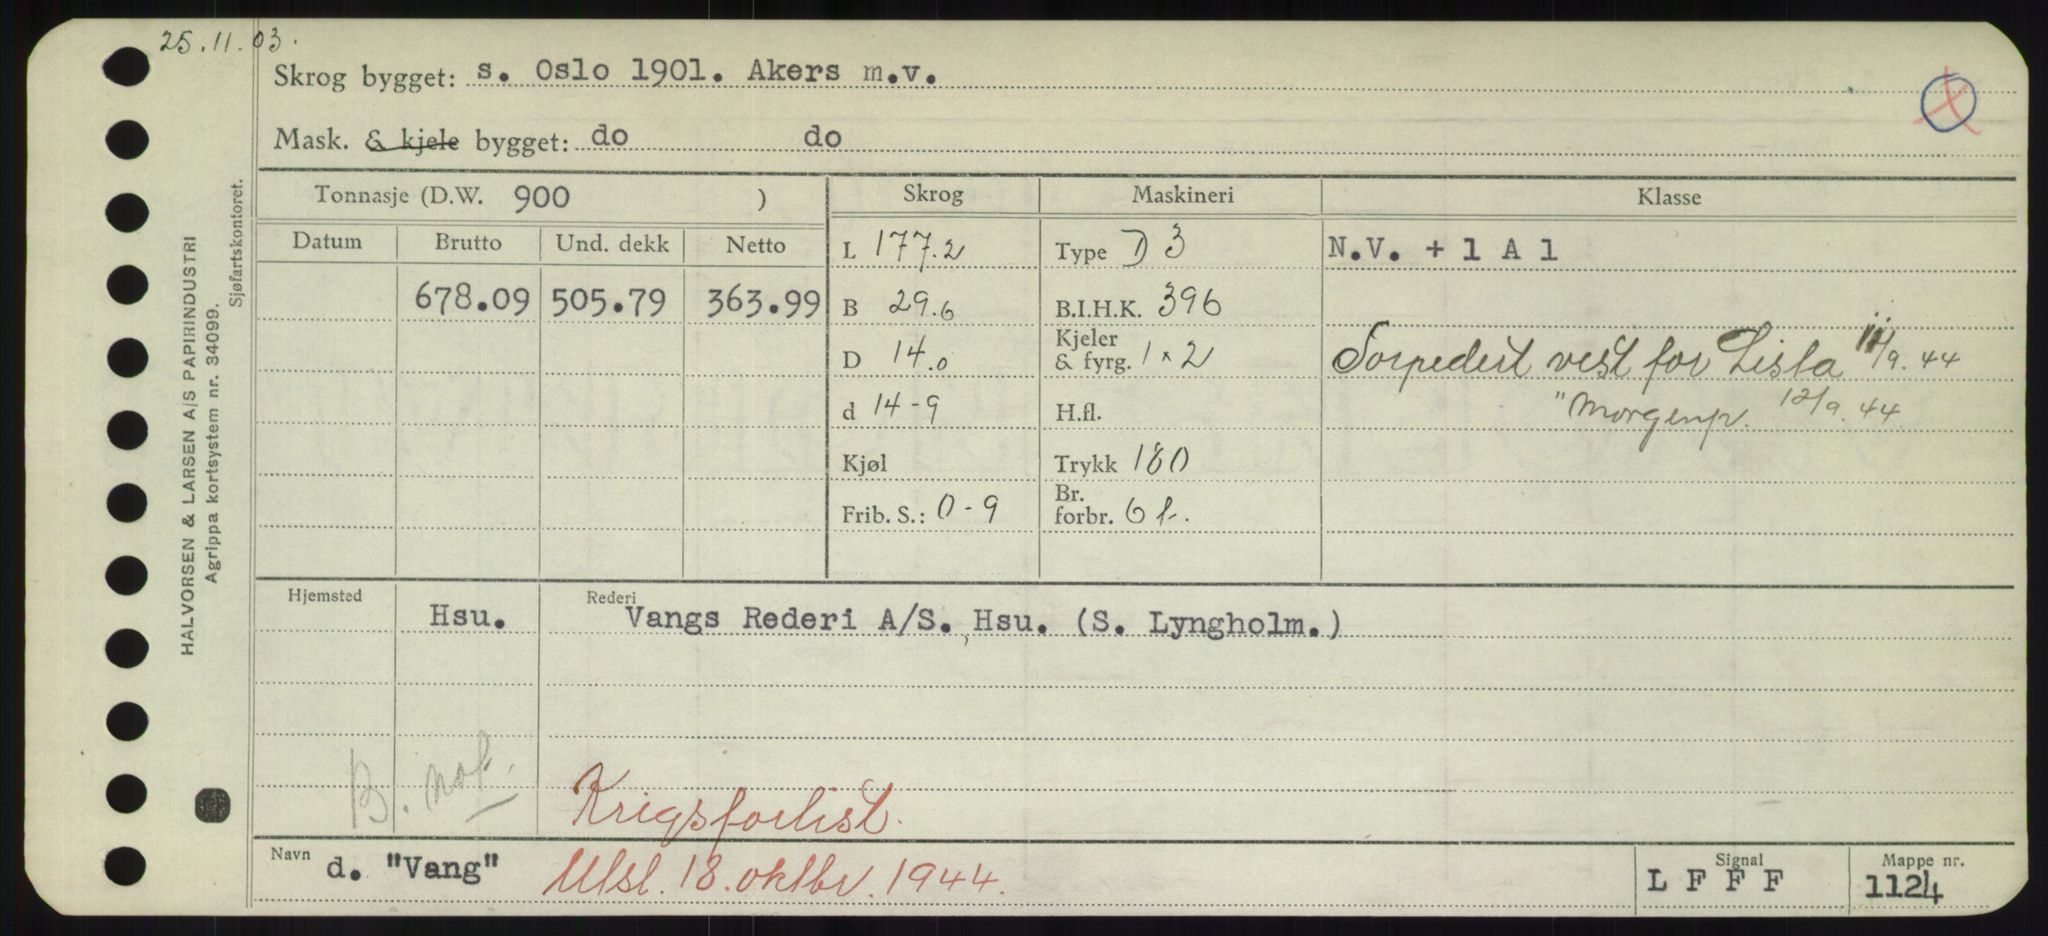 25.11.03.
Skrog bygget: s. Oslo 1901. Akers m.v.
Mask. & kjele bygget: do do
Tonnasje (D.W. 900 ) Skrog Maskineri Klasse
Datum Brutto Und. dekk Netto L 177.2 Type D 3 N.V. + 1 A 1
678.09 505.79 363.99 B 29.6 B.I.H.K. 396
D 14.0 Kjeler & fyrg. 1 x 2 Torpedert vest for Lista 11/9.44
d 14-9 H.fl. "Morgenp. 12/9.44
Kjøl Trykk 180
Frib. S.: 0-9 Br. forbr. 6 t.
Hjemsted Hsu. Rederi Vangs Rederi A/S., Hsu. (S. Lyngholm.)
B. not.
Krigsforlist.
Navn d. "Vang" Utsl. 18. oktbr. 1944. Signal L F F F Mappe nr. 1124
HALVORSEN & LARSEN A/S PAPIRINDUSTRI
Agrippa kortsystem nr. 34099.
Sjøfartskontoret.